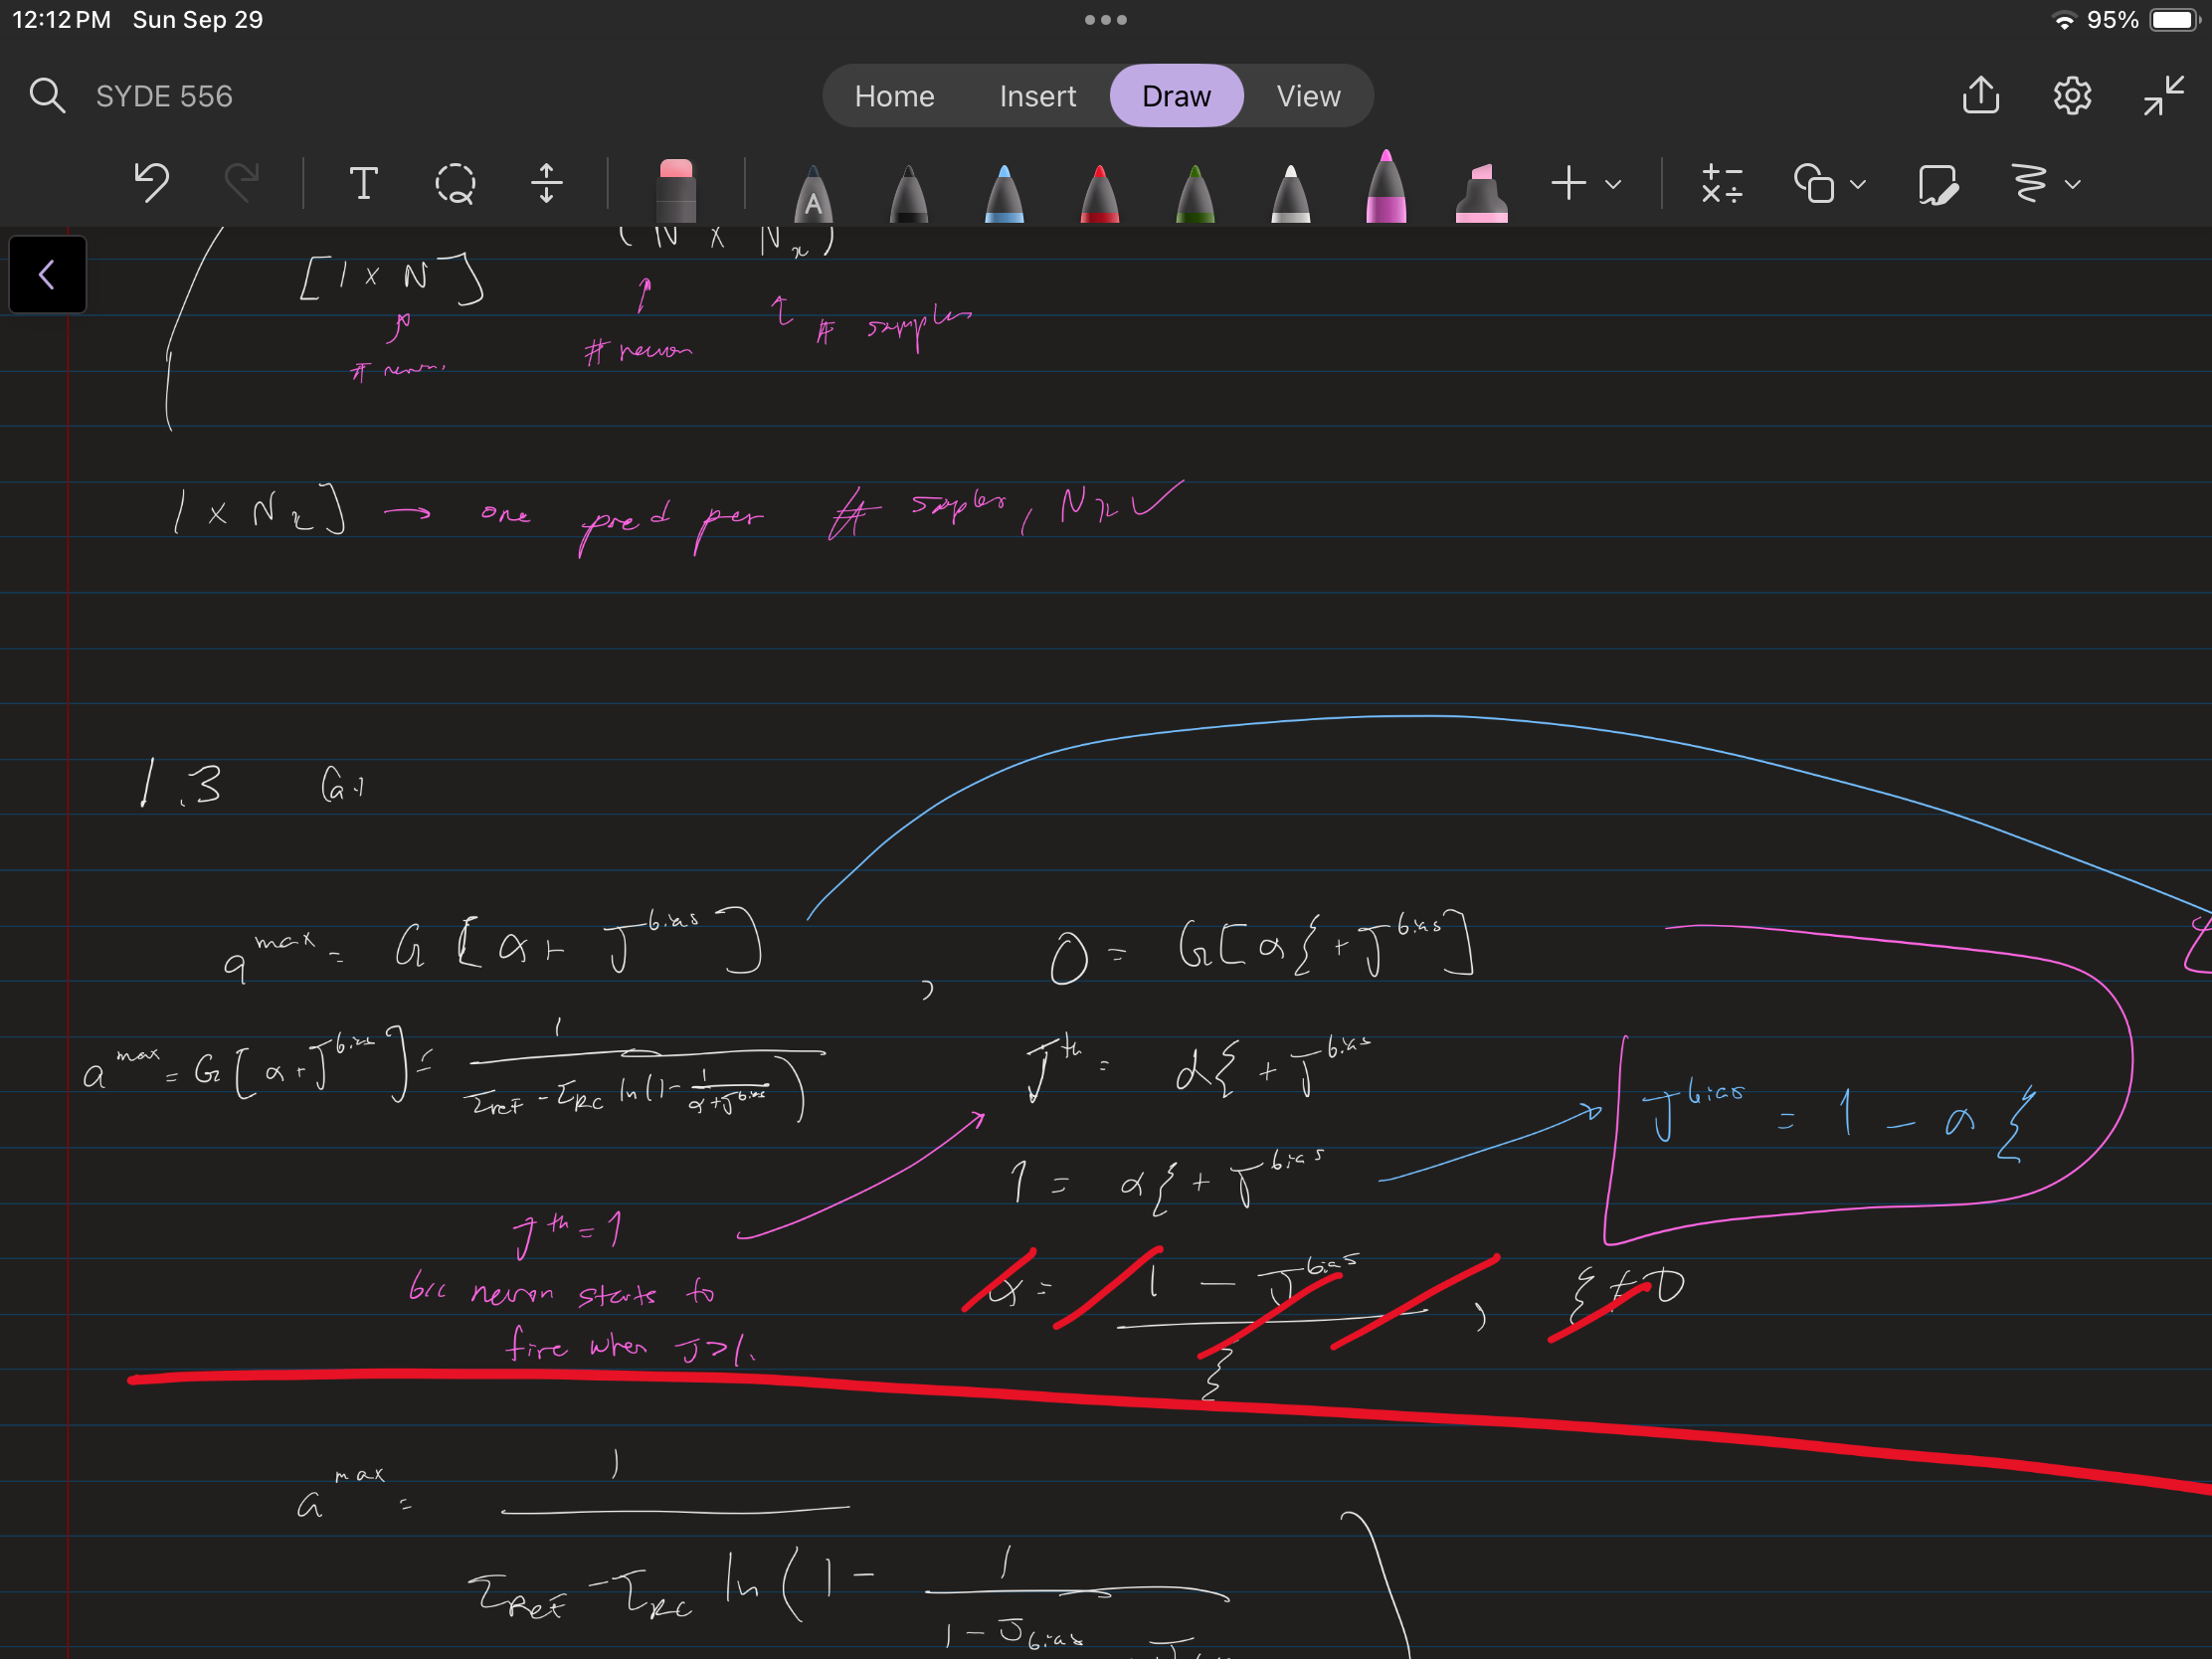 12:12 PM Sun Sep 29
95%
SYDE 556
Home Insert Draw View
T
A
(N x N_x)
[1 x N]
# samples
# neuron
# neuron.
1 x N_x] → one pred per # samples, N_x ✓
1.3 (a.)
a^max = G[α + J^bias] , 0 = G[αξ + J^bias]
a^max = G[α + J^bias] = 1 / (τ_ref - τ_RC ln(1 - 1/(α + J^bias)))
J^th = αξ + J^bias
J^bias = 1 - αξ
1 = αξ + J^bias
J^th = 1
b/c neuron starts to
fire when J>1.
α = (1 - J^bias) / ξ , ξ ≠ 0
a^max = 1 / (τ_ref - τ_RC ln(1 - 1 / (1 - J_bias